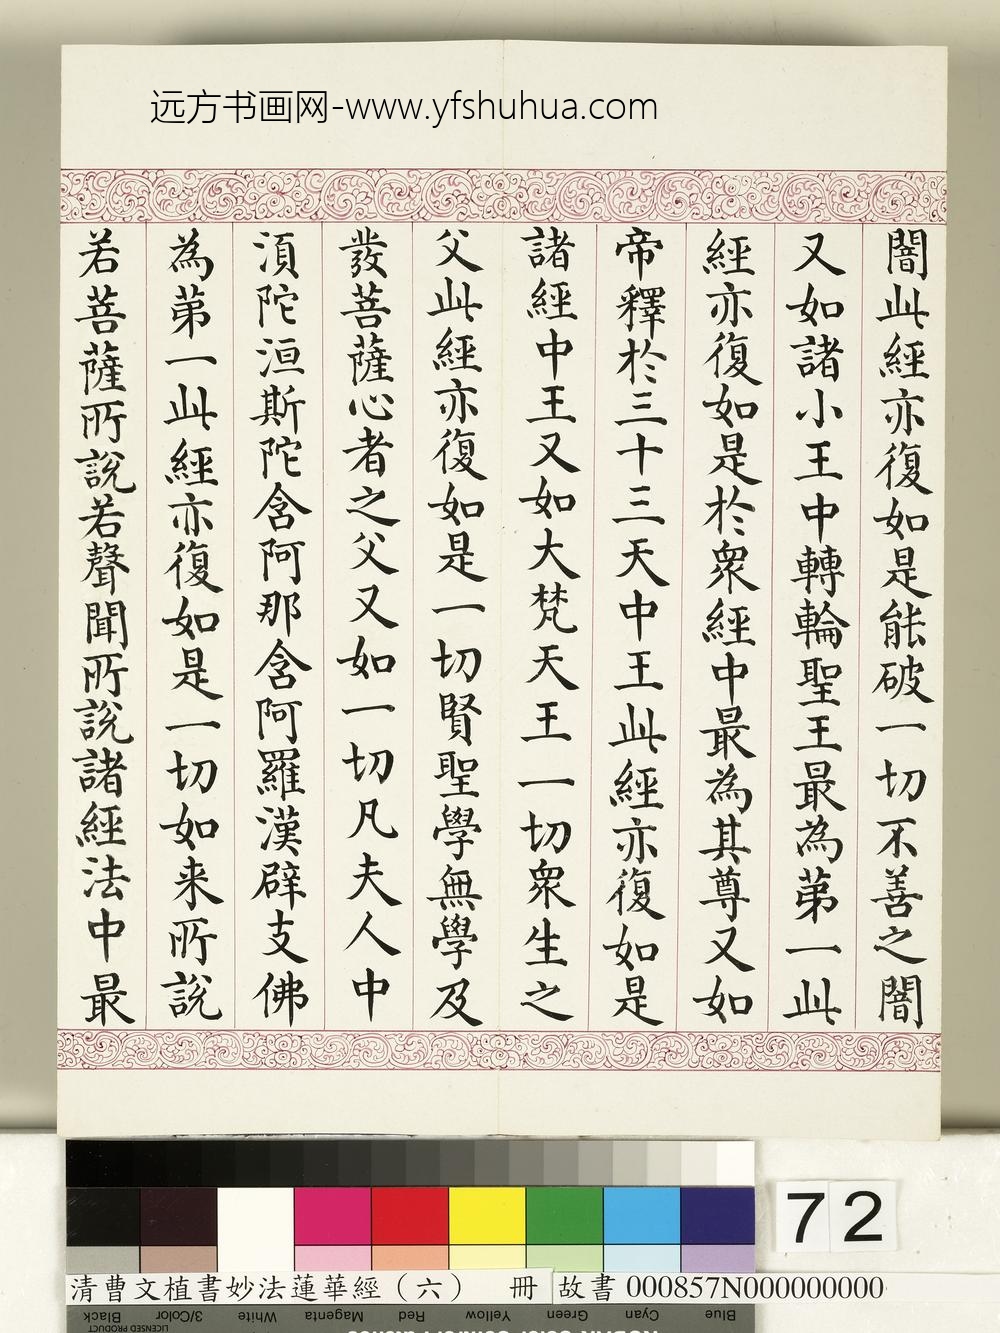 远方书画网-www.yfshuhua.com
闇此經亦復如是能破一切不善之闇
又如諸小王中轉輪聖王最為苐一此
經亦復如是於眾經中最為其尊又如
帝釋於三十三天中王此經亦復如是
諸經中王又如大梵天王一切眾生之
父此經亦復如是一切賢聖學無學及
發菩薩心者之父又如一切凡夫人中
湏陀洹斯陀含阿那含阿羅漢辟支佛
為苐一此經亦復如是一切如来所說
若菩薩所說若聲聞所說諸經法中最
72
清曹文植書妙法蓮華經（六） 冊
故書 000857N000000000
Black 3/Color White Magenta Red Yellow Green Cyan Blue
LICENSED PRODUCT